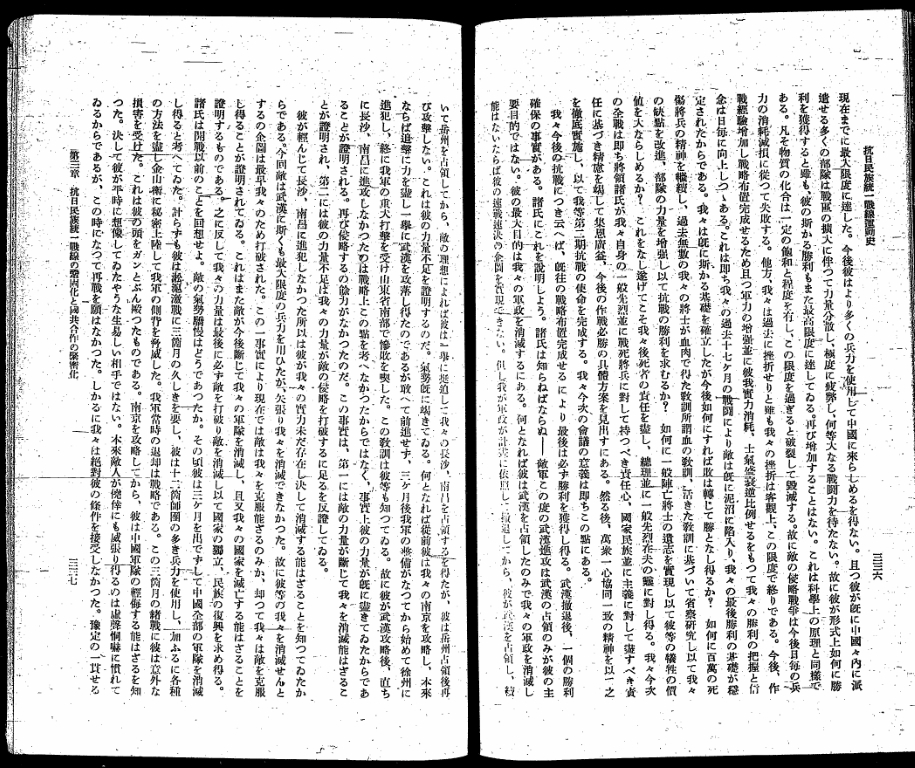 抗日民族統一戰線運動史
三三六
現在までに最大限度に達した。今後彼はより多くの兵力を使用して中國に來らしめるを得ない。且つ彼が既に中國々內に派
遣せる多くの部隊は戰區の擴大に伴つて力量分散し、極度に疲弊し、何等大なる戰鬪力を待たない。故に彼が形式上如何に勝
利を獲得すると雖も、彼の斯かる勝利もまた最高限度に達してゐる。再び增加することはない。これは科學上の原理と同樣で
ある。凡そ物質の化合は一定の飽和と程度を有し、この限度を過ぎると破裂して毀滅する。故に敵の侵略戰爭は今後日每の兵
力の消耗減損に從つて失敗する。他方、我々は過去に挫折せりと雖も我々の挫折は客觀上、この限度で終りである。今後、作
戰經驗增加し戰略布置完成せるため且つ軍力の增强並に彼我實力消耗、士氣盛衰遞比例せるをもつて我々の勝利の把握と信
念は日每に向上しつゝある。これは即ち我々の過去十七ヶ月の戰鬪により敵は既に泥沼に陷入り、我々の最後勝利の基礎が穩
定されたからである。我々は既に斯かる基礎を確立したが今後如何にすれば敗は轉じて勝となし得るか? 如何に百萬の死
傷將兵の精神を慰し、過去無數の我々の將士が血肉で得た敎訓所謂血の敎訓、活きた敎訓に基づいて省察研究し以て我々
の缺點を改進、部隊の力量を增强して以て抗戰の勝利を求むるか? 如何に一般陣亡將士の遺志を實現し以て彼等の犧牲の價
値を大ならしめるか? これをなし遂げてこそ我々後死者の責任を盡し、總理並に一般先烈在天の靈に對し得る。我々今次
の全戰は即ち將領諸氏が我々自身の一般先烈並に戰死將兵に對して持つべき責任心、國家民族並に主義に對して盡すべき責
任に基づき精意を竭して集思廣益、今後の作戰必勝の具體方案を見出すにある。然る後、萬衆一心協同一致の精神を以一之
を徹底實施し、以て我等第二期抗戰の使命を完成する。我々今次の會議の意義は即ちこの點にある。
我々今後の抗戰につき云へば、既往の戰略布置完成せるにより、最後は必ず勝利を獲得し得る。武漢撤退後、一個の勝利
確保の事實がある。諸氏にこれを說明しよう。諸氏は知らねばならぬ——敵軍この度の武漢進攻は武漢の占領のみが彼の主
要目的ではない。彼の最大目的は我々の軍政を消滅するにある。何となれば彼は武漢を占領したのみで我々の軍政を消滅し
能はないならば彼の速戰速決の企圖を實現できない。
いて岳州を占領してから、敵の理想によれば彼は一擧に挺迫して我々の長沙、南昌を占領するを得たが、彼は岳州占領後再
び攻擊しない。これは彼の力量不足を證明するのだ。氣勢既に竭きてゐる。何となれば從前彼は我々の南京を攻略し、本來
ならば追擊に力を盡し一擧に武漢を攻落し得たのであるが敢へて前進せず、三ヶ月後我軍の整備がなつてから始めて徐州に
進犯し、終に我軍の重大打擊を受け山東省南部で慘敗を喫した。この敎訓は彼等も知つてゐる。故に彼が武漢攻略後、直ち
に長沙、南昌に進攻しなかつたのは戰略上この點を考へなかつたからではなく、事實上彼の力量が既に盡きてゐたからであ
ることが證明される。再び侵略するの餘力がなかつたのだ。この事實は、第一には敵の力量が斷じて我々を消滅能はざるこ
とが證明され、第二には彼の力量不足は我々の力量が敵の侵略を打破するに足るを反證してゐる。
彼が輕んじて長沙、南昌に進犯しなかつた所以は彼が我々の實力未だ存在し決して消滅する能はざることを知つてゐたか
らである。今回敵は武漢に斯くも最大限度の兵力を用ひたが、矢張り我々を消滅できなかつた。故に彼等の我々を消滅せんと
するの企圖は最早我々のため打破された。この一事實により現在では敵は我々を克服能ざるのみか、却つて我々は敵を克服
し得ることが證明されてゐる。これはまた敵が今後斷じて我々の軍隊を消滅し、且又我々の國家を滅亡する能はざることを
證明するものである。之に反して我々の力量は最後に必ず敵を打破り敵を消滅し以て國家の獨立、民族の復興を求め得る。
諸氏は開戰以前のことを回想せよ。敵の氣勢驕慢はどうであつたか。その頃彼は三ケ月を出でずして中國全部の軍隊を消滅
し得ると考へてゐた。計らずも彼は淞滬激戰に三箇月の久しきを要し、彼は十二箇師團の多き兵力を使用し、加ふるに各種
の方法を盡し金山衞に秘密上陸して我軍の側背を脅威した。我軍當時の退却は戰略である。この三箇月の緖戰に彼は意外な
損害を受けた。これは彼の頭をガンとぶん毆つたものである。南京を攻略してから、彼は中國軍隊の輕侮する能はざるを知
つた。決して彼が平時に想像してゐたやうな生易しい相手ではない。本來敵人が僥倖にも威張り得るのは虛聲恫嚇に慣れて
ゐるからであるが、この時になつて再び戰を願はなかつた。しかるに我々は絕對彼の條件を接受しなかつた。豫定の一貫せる
第三章 抗日民族統一戰線の鞏固化と國共合作の緊密化
三三七